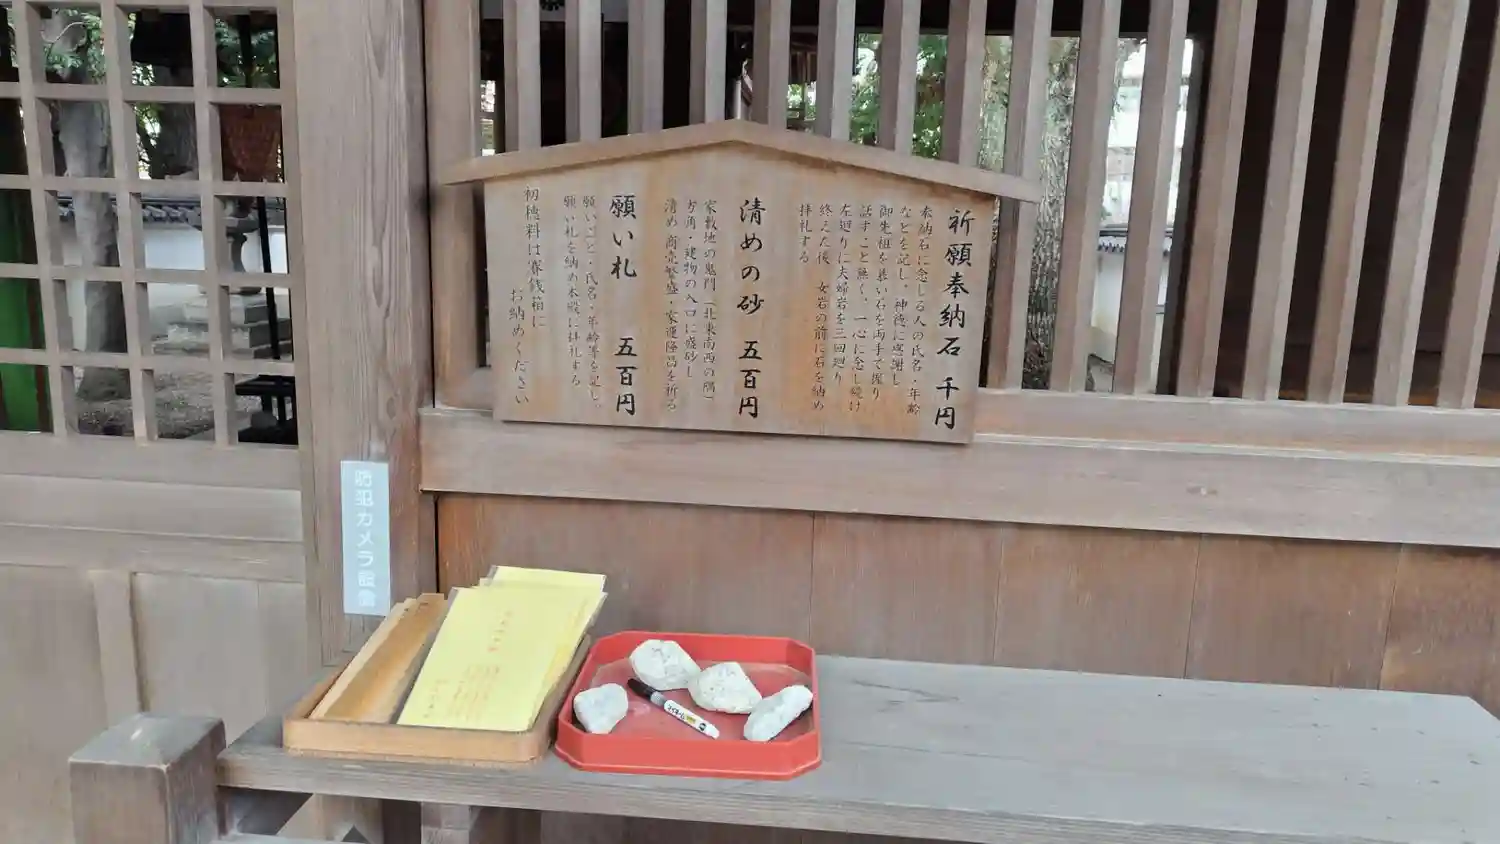 祈願奉納石 千円
奉納石に念じる人の氏名・年齢
などを記し、神徳に感謝し
御先祖を慕い石を両手で握り
話すこと無く、一心に念じ続け
左廻りに夫婦岩を三回廻り
終えた後、女岩の前に石を納め
拝礼する
清めの砂 五百円
家敷地の鬼門「北東南西の隅」
方角・建物の入口に盛砂し
清め 商売繁盛・家運隆昌を祈る
願い札 五百円
願いごと・氏名・年齢等を記し、
願い札を納め本殿に拝礼する
初穂料は賽銭箱に
お納めください
防犯カメラ設置